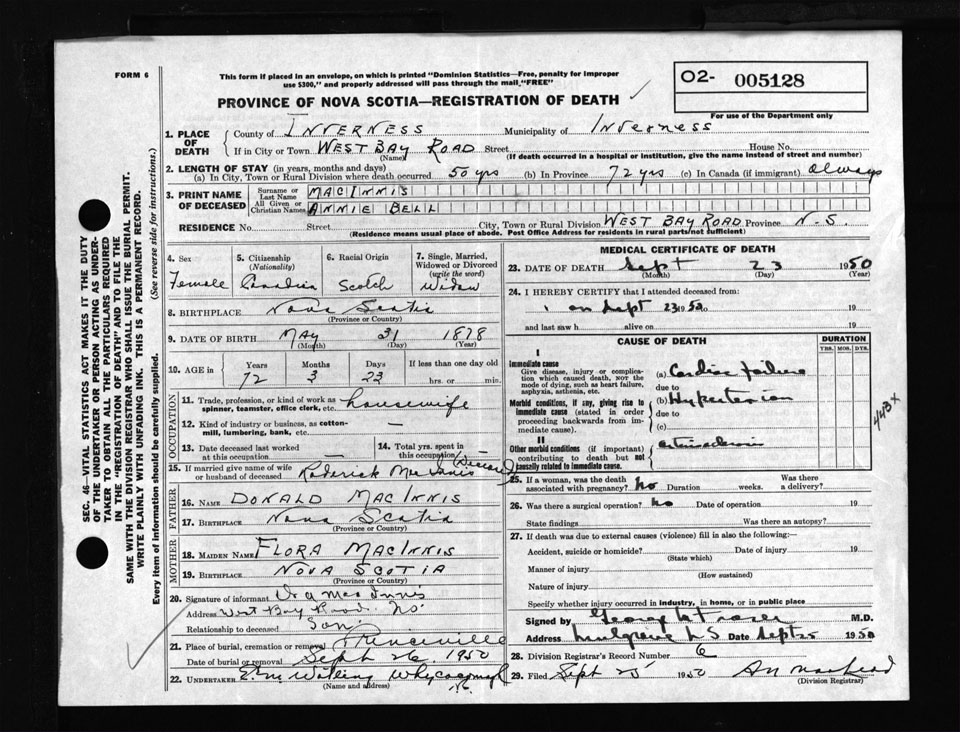 FORM 6
This form if placed in an envelope, on which is printed "Dominion Statistics—Free, penalty for improper
use $300," and properly addressed will pass through the mail "FREE"
PROVINCE OF NOVA SCOTIA—REGISTRATION OF DEATH
02- 005128
For use of the Department only
1. PLACE OF DEATH
County of INVERNESS Municipality of Inverness
If in City or Town WEST BAY ROAD Street House No.
(Name) (If death occurred in a hospital or institution, give the name instead of street and number)
2. LENGTH OF STAY (in years, months and days)
(a) In City, Town or Rural Division where death occurred 50 yrs (b) In Province 72 yrs (c) In Canada (if immigrant) always
3. PRINT NAME OF DECEASED
Surname or Last Name MACINNIS
All Given or Christian Names ANNIE BELL
RESIDENCE No. Street City, Town or Rural Division WEST BAY ROAD Province N-S.
(Residence means usual place of abode. Post Office Address for residents in rural parts not sufficient)
4. Sex Female
5. Citizenship (Nationality) Canadian
6. Racial Origin Scotch
7. Single, Married, Widowed or Divorced (write the word) Widow
8. BIRTHPLACE Nova Scotia
(Province or Country)
9. DATE OF BIRTH May 31 1878
(Month) (Day) (Year)
10. AGE in Years Months Days If less than one day old
72 3 23 hrs. or min.
OCCUPATION
11. Trade, profession, or kind of work as spinner, teamster, office clerk, etc. housewife
12. Kind of industry or business, as cotton-mill, lumbering, bank, etc. —
13. Date deceased last worked at this occupation —
14. Total yrs. spent in this occupation
15. If married give name of wife or husband of deceased Roderick MacInnis (Deceased)
FATHER
16. NAME DONALD MACINNIS
17. BIRTHPLACE Nova Scotia
(Province or Country)
MOTHER
18. MAIDEN NAME FLORA MACINNIS
19. BIRTHPLACE NOVA SCOTIA
(Province or Country)
20. Signature of informant MacInnis
Address West Bay Road. NS
Relationship to deceased Son.
21. Place of burial, cremation or removal Princeville
Date of burial or removal Sept 26, 1950
22. UNDERTAKER Whycocomagh
(Name and address)
MEDICAL CERTIFICATE OF DEATH
23. DATE OF DEATH Sept 23 1950
(Month) (Day) (Year)
24. I HEREBY CERTIFY that I attended deceased from:
on Sept 23 1950 19
and last saw h alive on 19
CAUSE OF DEATH
DURATION
YRS. MOS. DYS.
I
Immediate cause
Give disease, injury or complication which caused death, not the mode of dying, such as heart failure, asphyxia, asthenia, etc.
(a) Cardiac failure
due to
Morbid conditions, if any, giving rise to immediate cause (stated in order proceeding backwards from immediate cause).
(b) Hypertension
due to
(c)
II
Other morbid conditions (if important) contributing to death but not causally related to immediate cause.
443X
25. If a woman, was the death associated with pregnancy? No Duration weeks. Was there a delivery?
26. Was there a surgical operation? No Date of operation 19
State findings Was there an autopsy?
27. If death was due to external causes (violence) fill in also the following:
Accident, suicide or homicide? Date of injury 19
(State which)
Manner of injury
(How sustained)
Nature of injury
Specify whether injury occurred in industry, in home, or in public place
Signed by George Fraser M.D.
Address Mulgrave NS Date Sept 25 1950
28. Division Registrar's Record Number 6
29. Filed Sept 25 1950
(Division Registrar)
SEC. 46—VITAL STATISTICS ACT MAKES IT THE DUTY
OF THE UNDERTAKER OR PERSON ACTING AS UNDER-
TAKER TO OBTAIN ALL THE PARTICULARS REQUIRED
IN THE "REGISTRATION OF DEATH" AND TO FILE THE
SAME WITH THE DIVISION REGISTRAR WHO SHALL ISSUE THE BURIAL PERMIT.
WRITE PLAINLY WITH UNFADING INK. THIS IS A PERMANENT RECORD.
Every item of information should be carefully supplied. (See reverse side for instructions.)